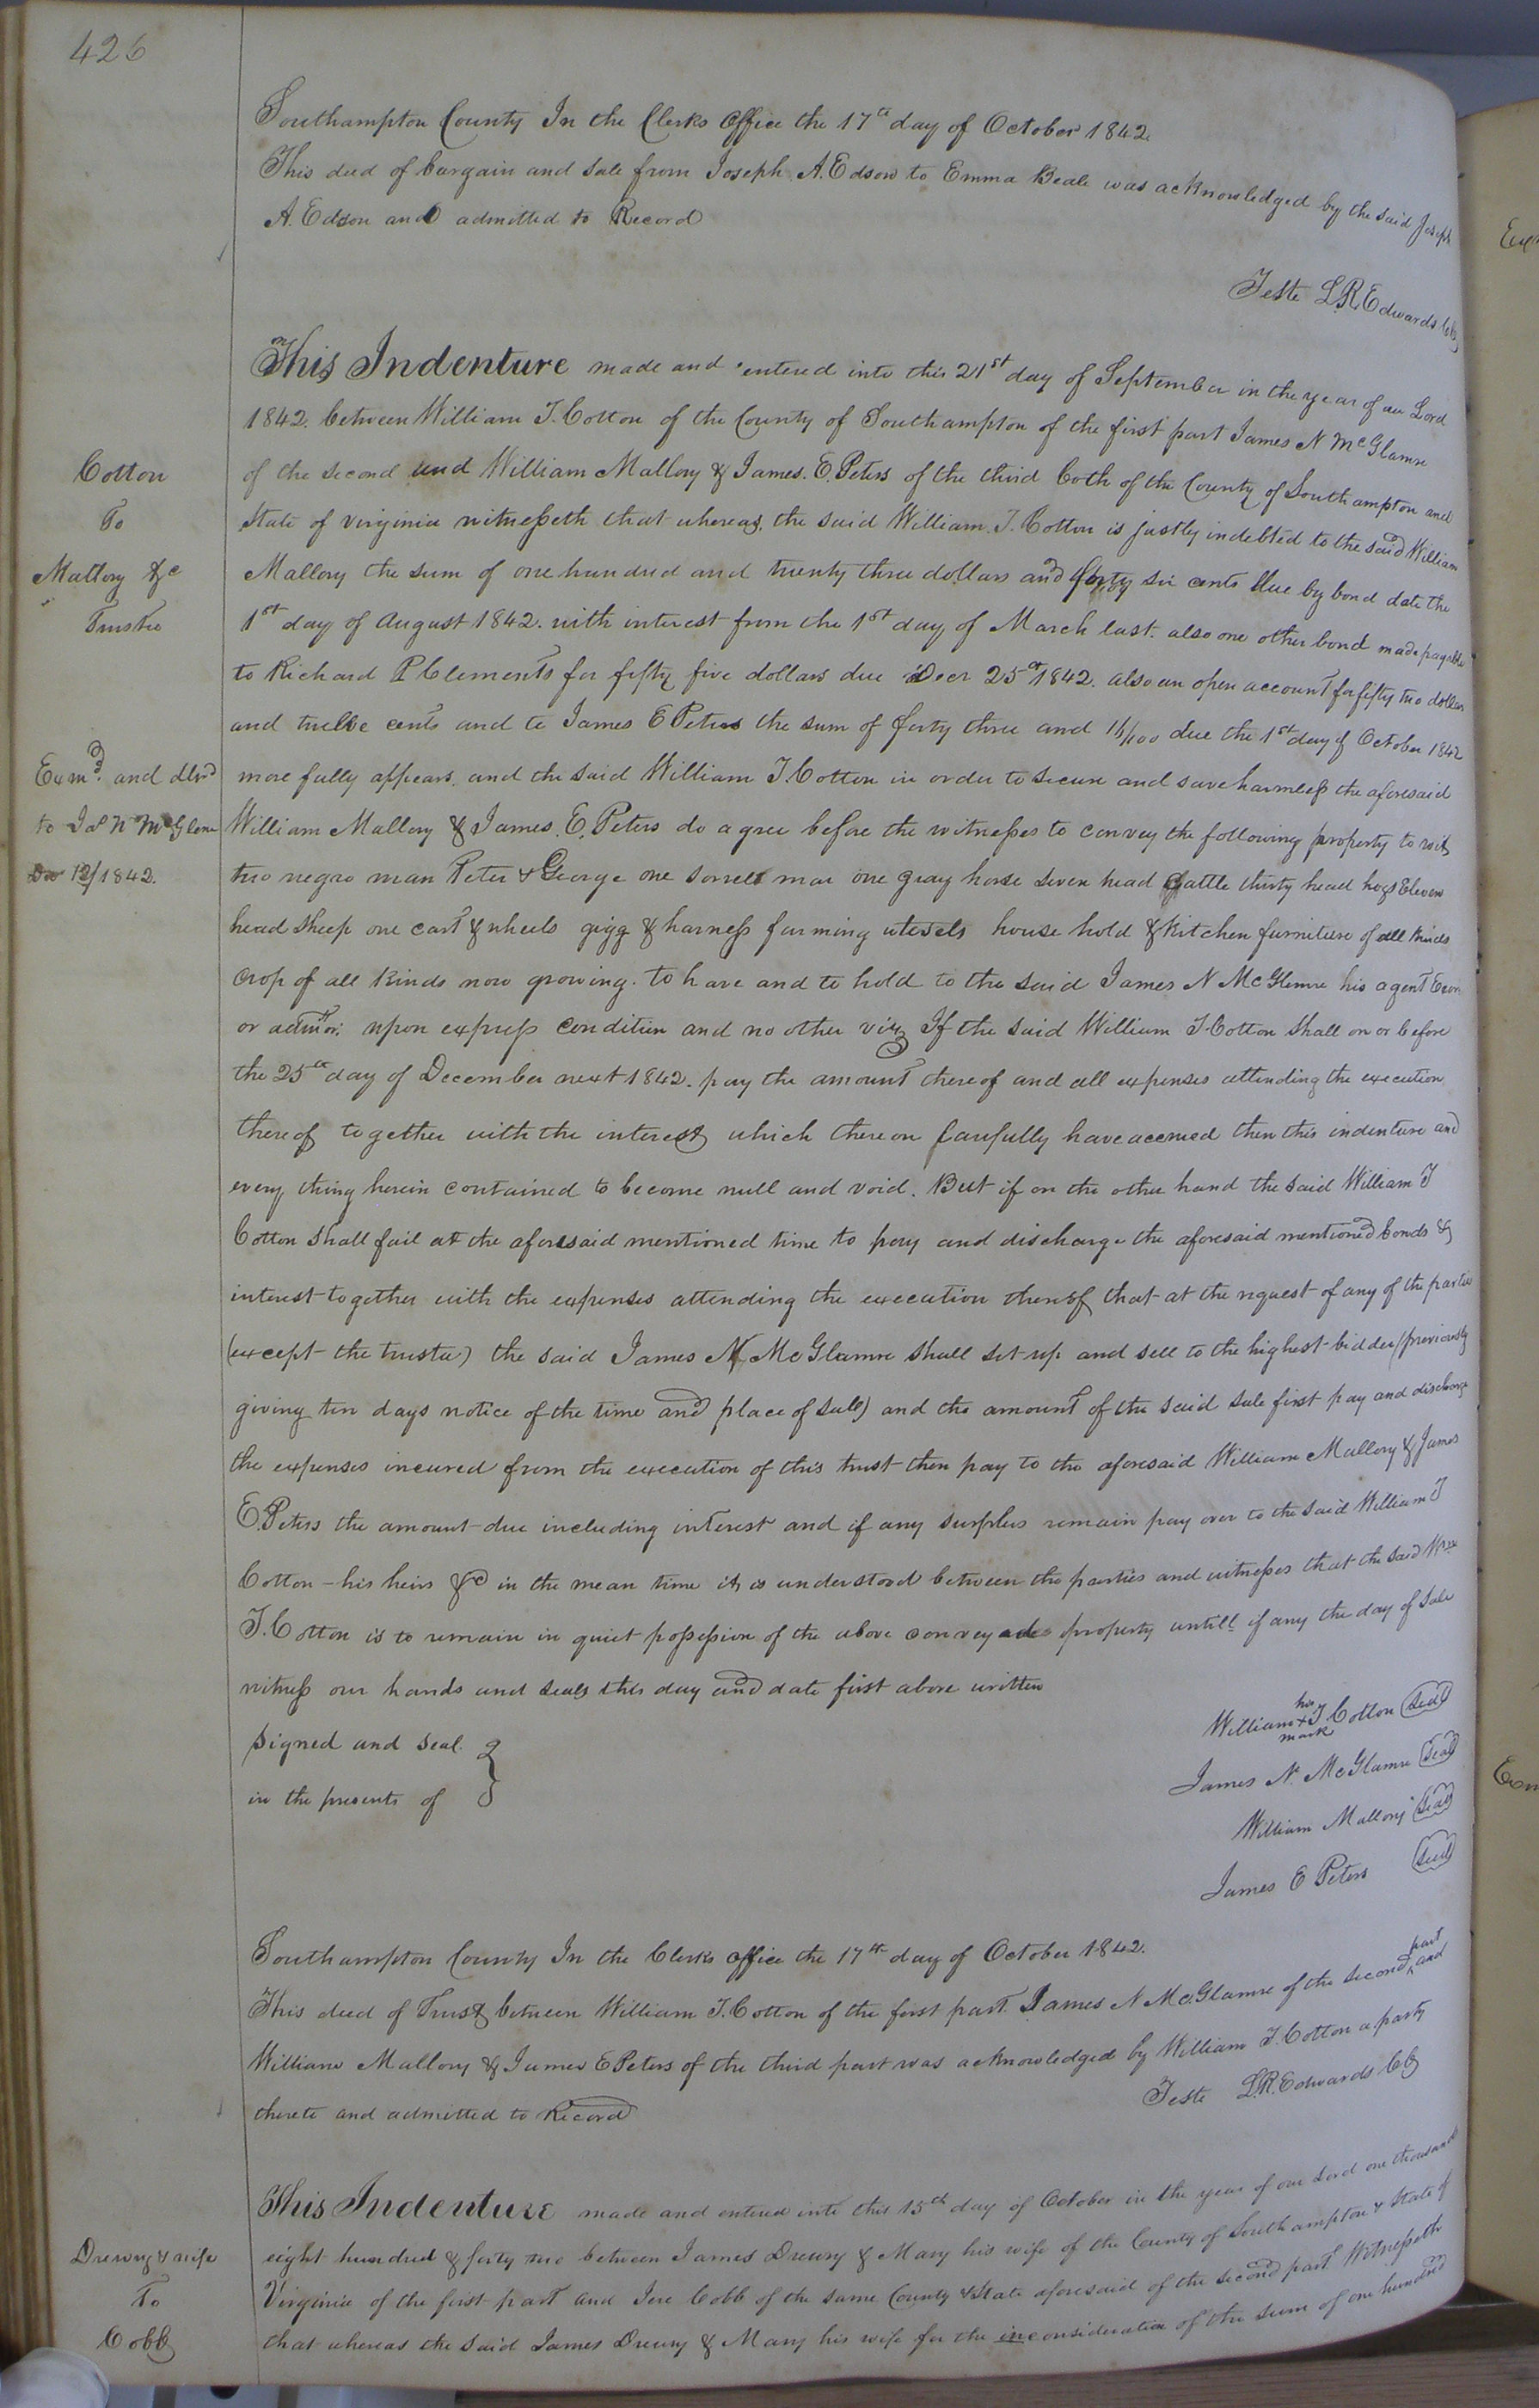 426
Southampton County In the Clerks Office the 17th day of October 1842
This deed of bargain and sale from Joseph A. Edson to Emma Beale was acknowledged by the said Joseph
A. Edson and admitted to Record
Teste L.R. Edwards
This Indenture made and entered into this 21st day of September in the year of our Lord
1842. between William T. Cotton of the County of Southampton of the first part James N McGlamre
Cotton
To
Mallory &c
Trustee
of the second and William Mallory & James. E. Peters of the third both of the County of Southampton and
State of virginia witnesseth that whereas, the said William. T. Cotton is justly indebted to the said William
Mallory the sum of one hundred and twenty three dollars and forty six cents due by bond date the
1st day of August 1842. with interest from the 1st day of March last. also one other bond made payable
to Richard P Clements for fifty five dollars due Decr 25th 1842. also an open account for fifty two dollars
and twelve cents and to James E Peters the sum of forty three and /100 due the 1st day of October 1842
Exmd. and dlvd
to Jas N McGlam
Dec 12/1842.
more fully appears. and the said William T. Cotton in order to secure and save harmless the aforesaid
William Mallory & James. E. Peters do agree before the witnesses to convey the following property to wit
two negro man Peter & George one sorrell mar one gray horse seven head Cattle thirty head hogs Eleven
head Sheep one cart & wheels gigg & harness farming utesels house hold & Kitchen furniture of all kinds
crop of all kinds now growing. to have and to hold to the said James N McGlamre his agent Exor
or admtor; upon express condition and no other viz If the said William T. Cotton shall on or before
the 25th day of December next 1842. pay the amount thereof and all expenses attending the execution
thereof together with the interest which thereon lawfully have accrued then this indenture and
every thing herein contained to become null and void. But if on the other hand the said William T
Cotton shall fail at the aforesaid mentioned time to pay and discharge the aforesaid mentioned bonds &
interest together with the expenses attending the execution thereof that at the request of any of the parties
(except the trustee) the said James N McGlamre shall set up and sell to the highest bidder (previously
giving ten days notice of the time and place of sale) and the amount of the said sale first pay and discharge
the expenses incured from the execution of this trust then pay to the aforesaid William Mallory & James
E. Peters the amount due including interest and if any surplus remain pay over to the said William T
Cotton - his heirs &c in the mean time it is understood between the parties and witnesses that the said Wm
T. Cotton is to remain in quiet possession of the above conveyed property untill if any the day of sale
witness our hands and seals this day and date first above written
Signed and seal.
in the presents of
William his + mark T. Cotton (Seal)
James N. McGlamre (Seal)
William Mallory (Seal)
James E Peters (Seal)
Southampton County In the Clerks office the 17th day of October 1842.
This deed of Trust between William T. Cotton of the first part. James N McGlamre of the second part and
William Mallory & James E Peters of the third part was acknowledged by William T. Cotton a party
thereto and admitted to Record
Teste L.R. Edwards CC
This Indenture made and entered into this 15th day of October in the year of our Lord one thousand
Drewry & wife
To
Cobb
eight hundred & forty two between James Drewry & Mary his wife of the County of Southampton & State of
Virginia of the first part and Jere Cobb of the same County & State aforesaid of the second part Witnesseth
that whereas the said James Drewry & Mary his wife for the inconsideration of the sum of one hundred